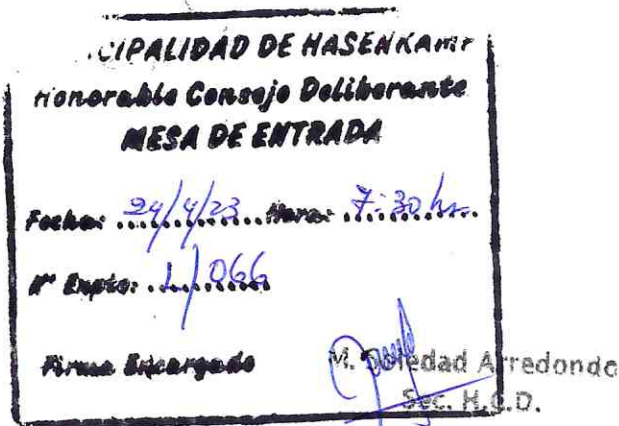 CIPALIDAD DE HASENKAMP
Honorable Consejo Deliberante
MESA DE ENTRADA
Fecha: 24/4/23 Hora: 7:30 hs
N° Expte: 1/066
Firma Encargado
M. Soledad Arredondo
Sec. H.C.D.